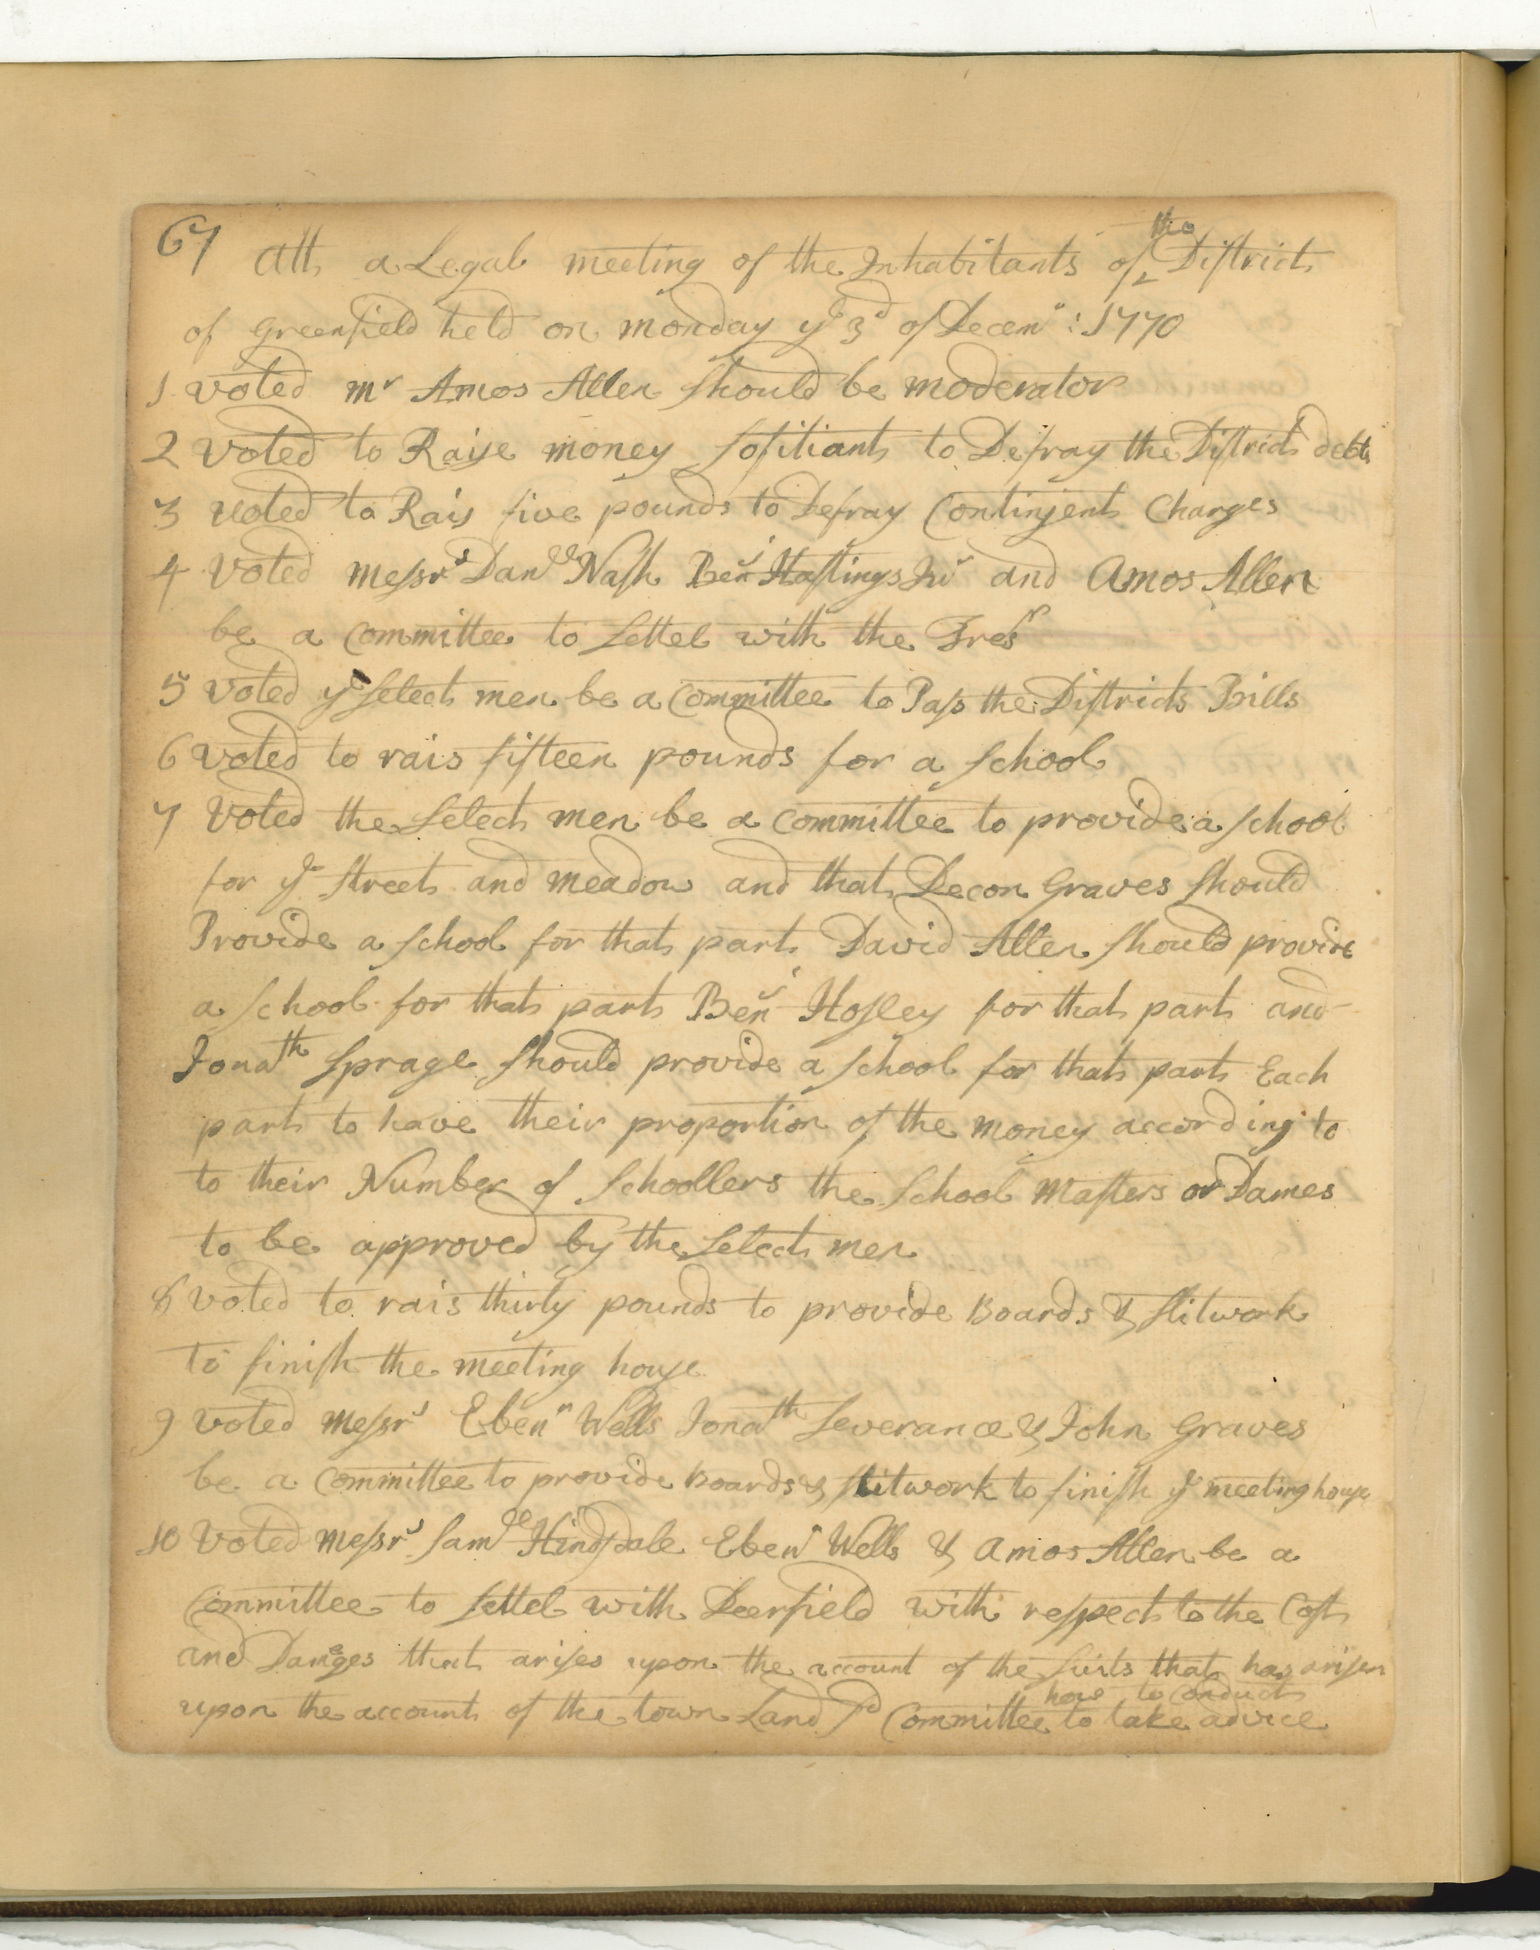 67 Att a Legal meeting of the Inhabitants of the District
of Greenfield held on monday ye 3d of Decemr: 1770
1 voted mr Amos Allen should be moderator
2 voted to Raise money sofitiant to Defray the District debts
3 voted to Rais five pounds to Defray Continjent Charges
4 voted messrs Danll Nash Benj Hastings Jur and Amos Allen
be a committee to settel with the Tresr
5 voted ye select men be a committee to Pass the Districts Bills
6 voted to rais fifteen pounds for a school
7 voted the select men be a committee to provide a school
for ye street and meadow and that Decon Graves should
Provide a school for that part David Allen should provide
a school for that part Benj Hosley for that part and
Jonath Sprage should provide a school for that part Each
part to have their proportion of the money according to
to their Number of schoollers the school masters or Dames
to be approved by the select men
8 voted to rais thirty pounds to provide Boards & slitwork
to finish the meeting house
9 voted messrs Ebenr Wells Jonath Severance & John Graves
be a committee to provide Boards & slitwork to finish ye meeting house
10 voted messrs Samll Hinsdale Ebenr Wells & Amos Allen be a
committee to settel with Deerfield with respect to the Cost
and Damges that arises upon the account of the suits that has arisen
how to conduct
upon the account of the town Land sd committee to take advice